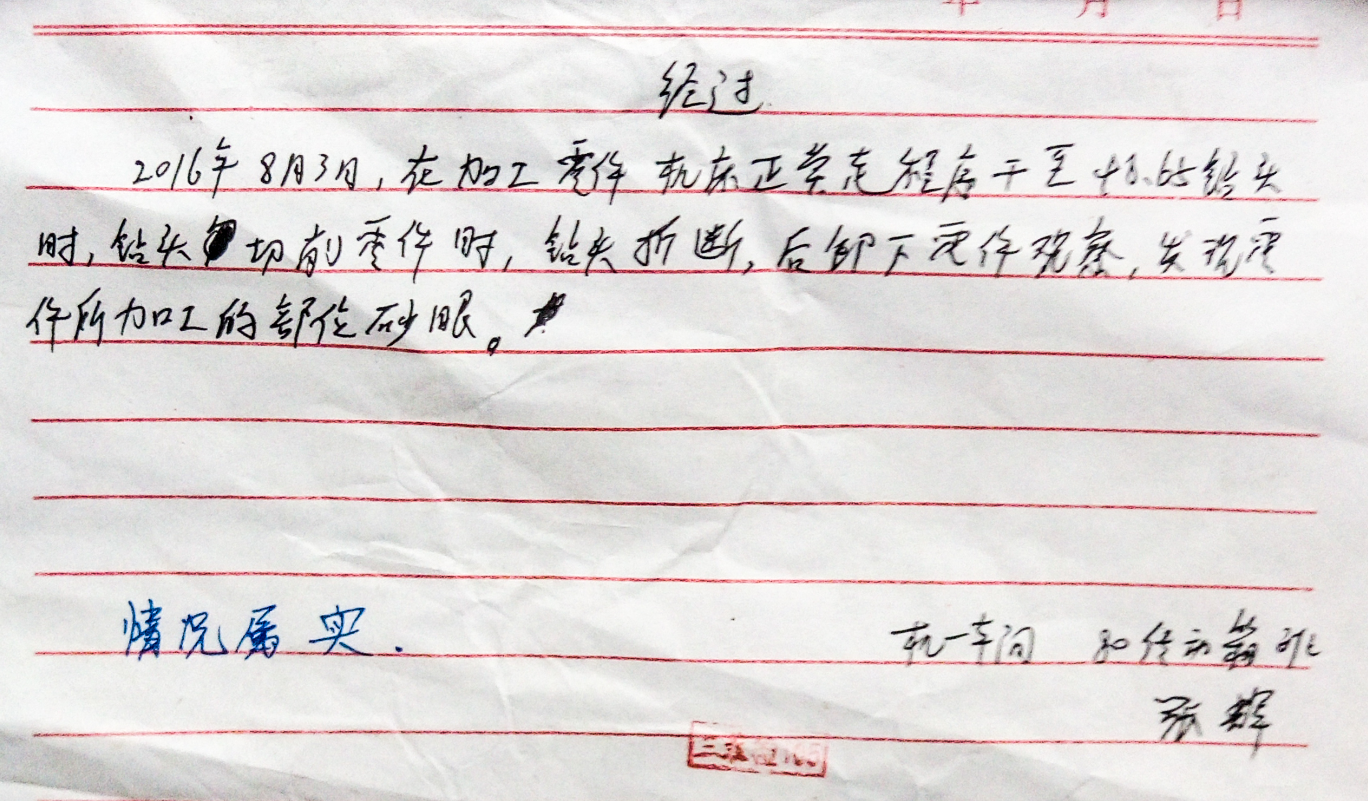 年 月 日
经过
2016年8月3日,在加工零件机床正常走程序干至φ8.65钻头
时,钻头切削零件时,钻头折断,后卸下零件观察,发现零
件所加工的部位砂眼。
情况属实. 机一车间 80传动箱班
张辉